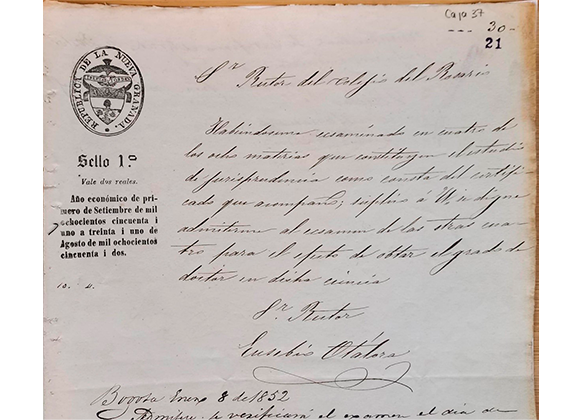 Caja 37
30
21
REPUBLICA DE LA NUEVA GRANADA.
Sello 1.º
Vale dos reales.
Año económico de pri-
mero de Setiembre de mil
ochocientos cincuenta i
uno a treinta i uno de
Agosto de mil ochocientos
cincuenta i dos.
Sr. Rector del Colegio del Rosario
Habiéndoseme ecsaminado en cuatro de
las ocho materias que constituyen el estudio
de jurisprudencia como consta del certifi-
cado que acompaño; suplico á U. se digne
admitirme al ecsamen de las otras cua-
tro para el efecto de obtar el grado de
doctor en dicha ciencia
Sr. Rector
Eusebio Otálora
Bogotá Enero 8 de 1852
se verificará el examen el dia de